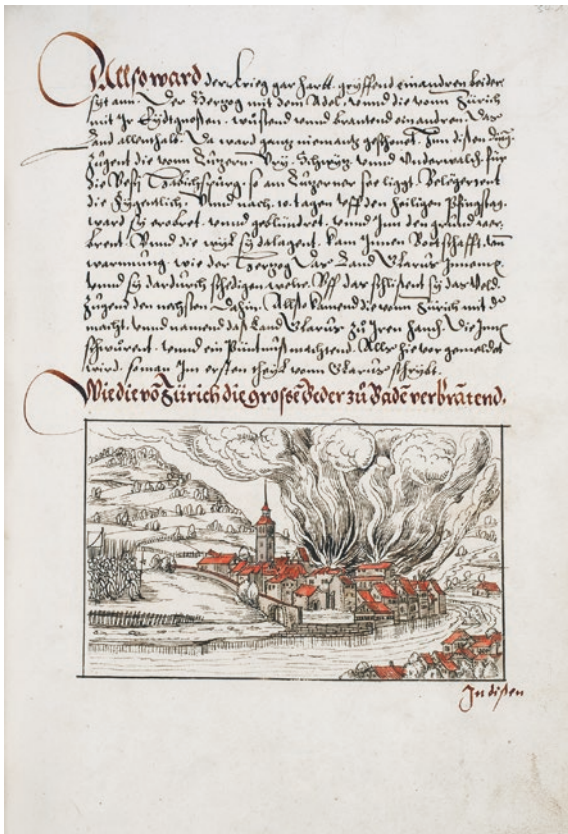 Allso ward der krieg gar hartt. gryffend einandren beider
syt ann. Der Herzog mit dem Adel. vnnd die vonn Zürich
mit Jr Eydtgnossen. wüstend vnnd brantend einandren. Das
Land allenthalb. Da ward gantz niemants geschonet. Jnn disen
zugent die vonn Lutzern. Vry. Schwytz. vnnd Vnderwalden. für
die Vesty Habichspurg. so am Lutzerner see liggt. Belegertent
die Eygentlich. Vnnd nach .10. tagen vff den heiligen Pfingstag.
ward sy erobret. vnnd geblündret. vnnd Jnn den grund ver
brent. Vnnd die wyl sy da lagent. kam Jnnen Bottschafft. vnd
warnnung. wie der Hertzog das Land Glarus Jnnemen
vnnd sy dardurch schedigen welte. Vff das schlussent sy das Veld
zugend den nechsten. dahin. Allso kamend die vonn Zürich mit
macht. vnnd namend das Land Glarus zu Jren hand. Die Jnen
schwurent. vnnd ein Püntnuß machtend. Alles hievor gemeldet
wird. so man Jm ersten theyl vonn Glarus schrybt.
Wie die vō Zürich die grosse Beder zů Bade verbrātend.
Jn disen